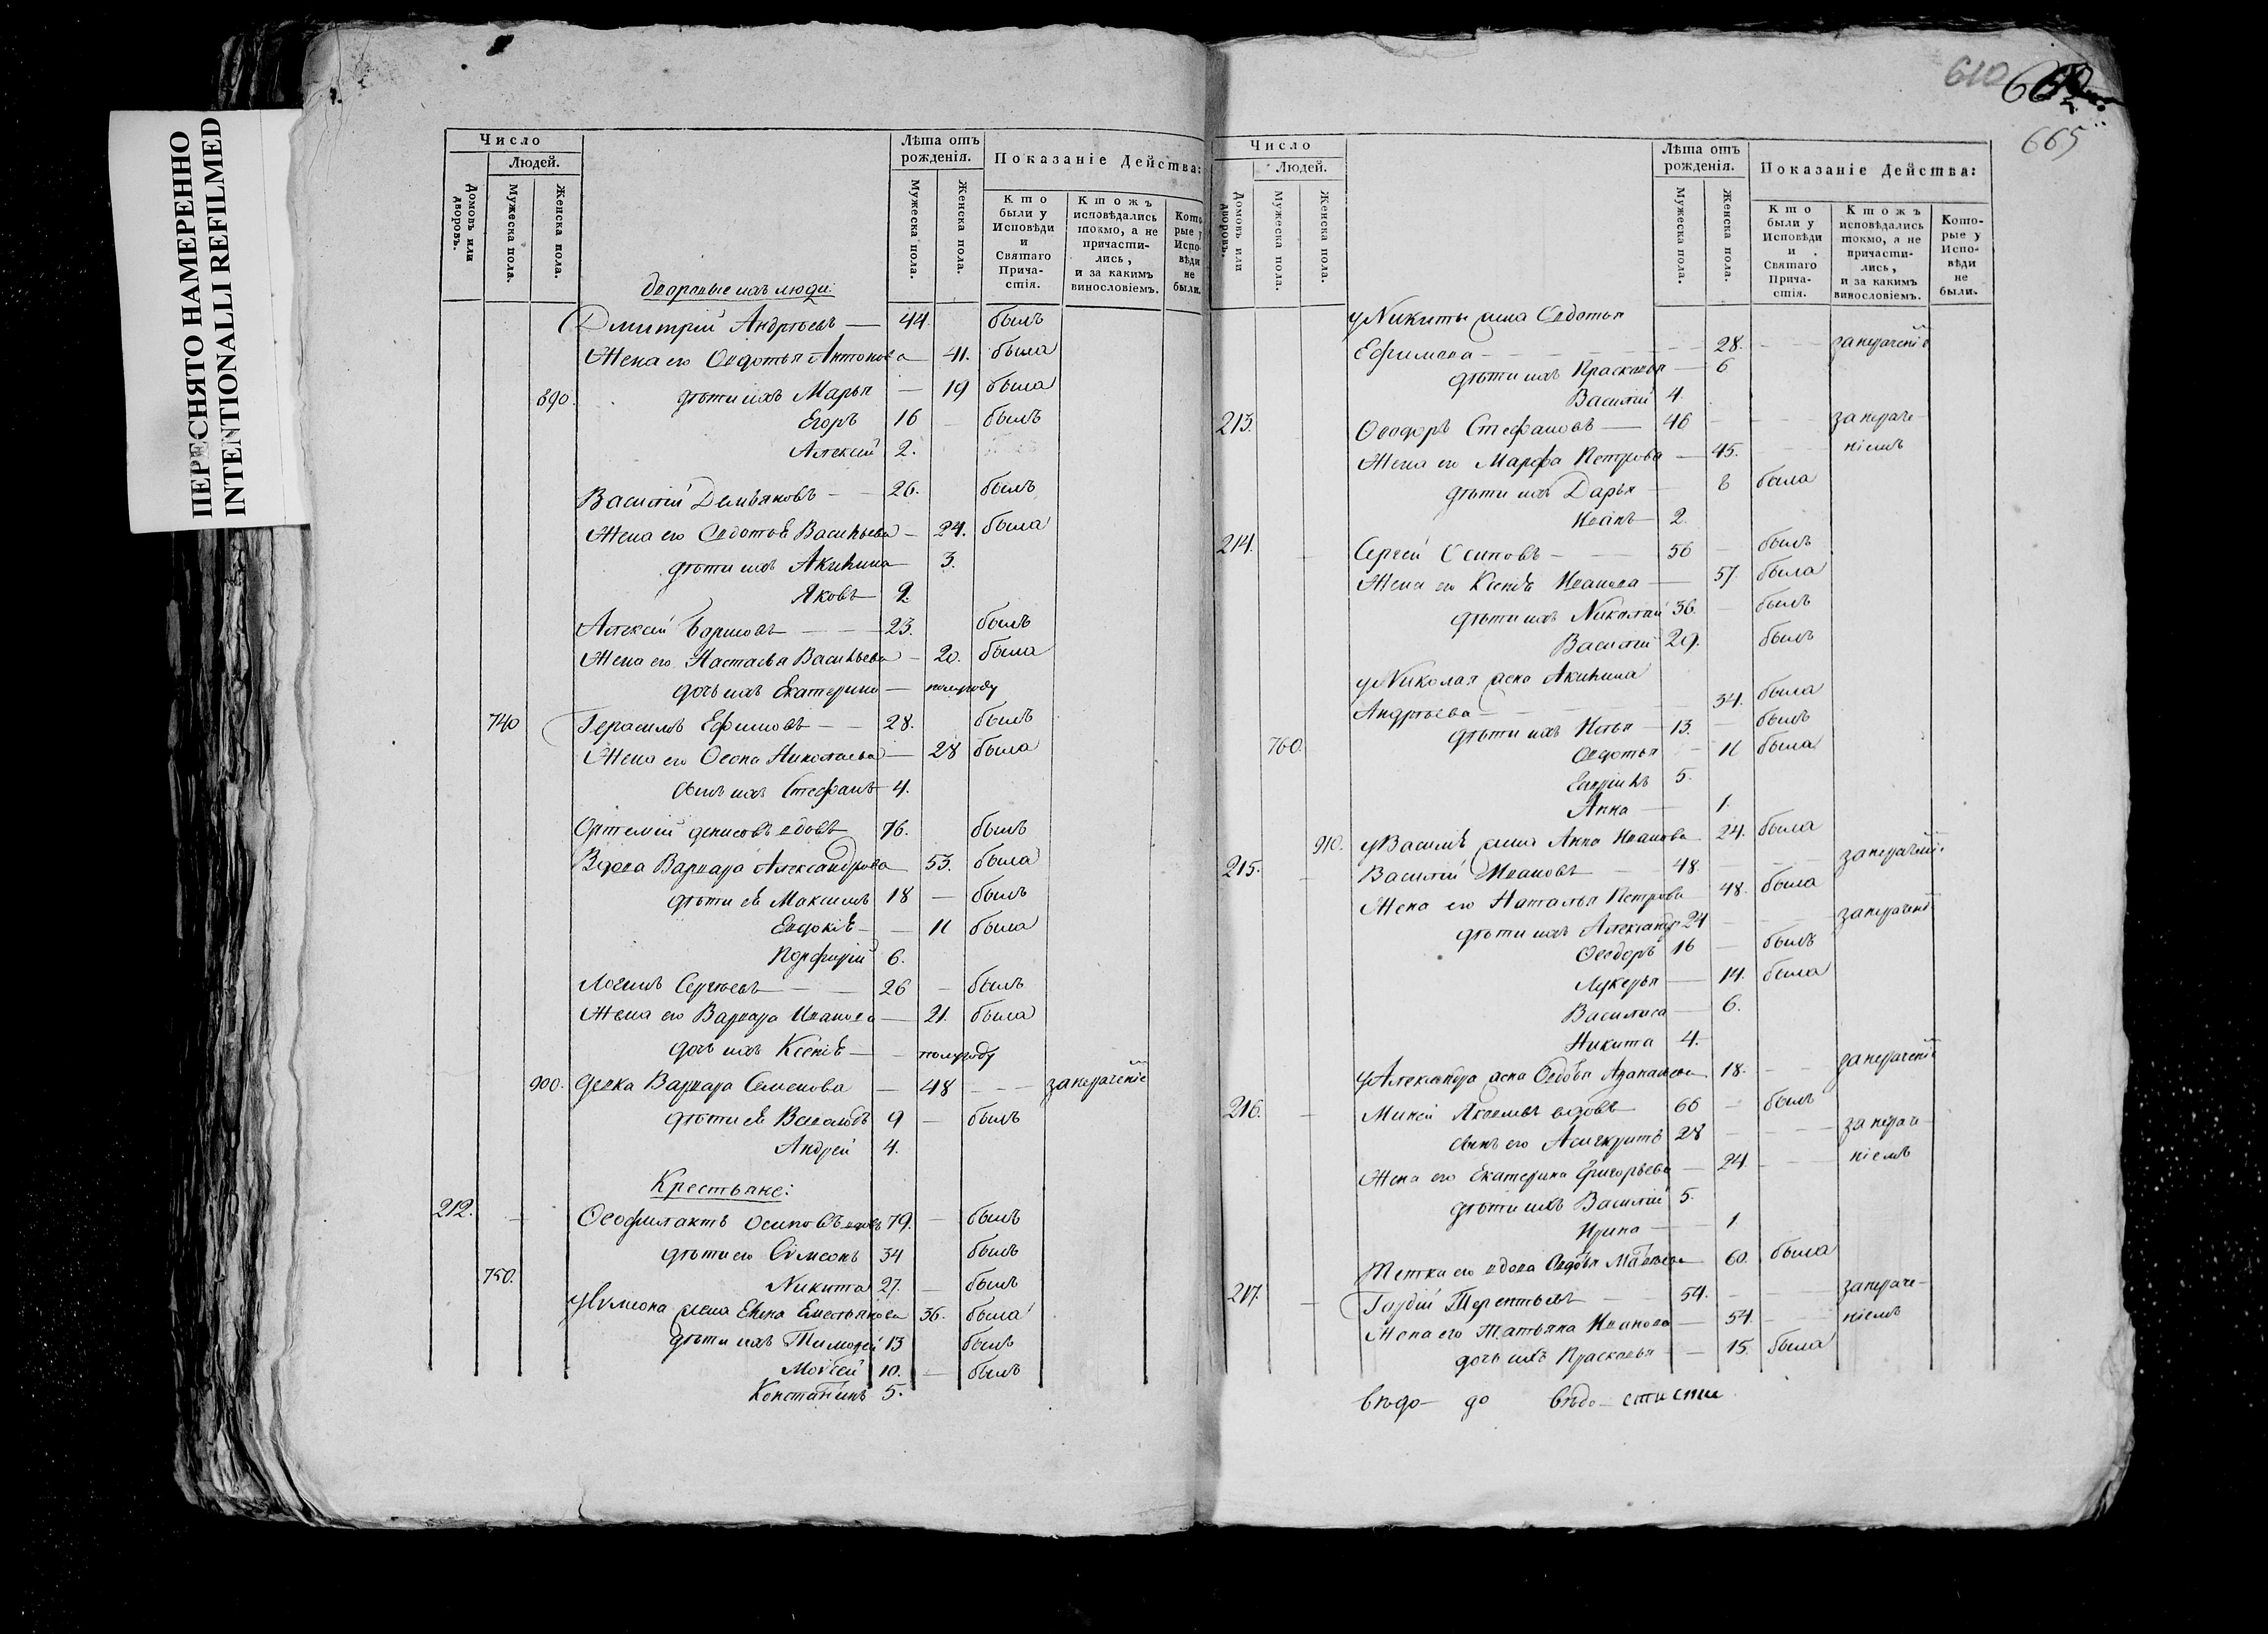 ПЕРЕСНЯТО НАМЕРЕННО
INTENTIONALLI REFILMED
Число
Людей.
Домовъ или дворовъ.
Мужеска пола.
Женска пола.
Лѣта отъ рожденія.
Мужеска пола.
Женска пола.
Показаніе Действа:
Кто были у Исповѣди и Святаго Причастія.
Ктожъ исповѣдались токмо, а не причастились, и за какимъ винословіемъ.
Которые у Исповѣди не были.
дворовые ихъ люди:
Дмитрій Андрѣевъ — 44. былъ
Жена его Овдотья Антонова 41. была
890. дѣти ихъ Марья — 19 была
Егоръ 16 былъ
Алексѣй 2.
Василій Демьяновъ — 26. былъ
Жена его Овдотья Васильева — 24. была
дѣти ихъ Акилина 3.
Яковъ 2.
Алексѣй Борисовъ — 23. былъ
Жена его Настасья Васильева — 20. была
дочь ихъ Екатерина — полугоду
740 Герасимъ Ефимовъ — 28. былъ
Жена его Ѳеона Николаева — 28 была
сынъ ихъ Стефанъ 4.
Артемій Денисовъ вдовъ 76. былъ
Вдова Варвара Александрова 53. была
дѣти ея Максимъ 18 — былъ
Евдокія — 11 была
Порфирій 6.
Логинъ Сергѣевъ — 26 — былъ
Жена его Варвара Иванова — 21. была
дочь ихъ Ксенія — полугоду
900. девка Варвара Семенова — 48 — занерачение
дѣти ея Всеволодъ 9 — былъ
Андрей 4.
Крестьяне:
212. Ѳеофилактъ Осиповъ вдовъ 79. — былъ
дѣти его Сѵмеонъ 34 былъ
750. Никита 27. — былъ
у Сѵмеона жена Елена Емельянова 36. была
дѣти ихъ Тимоѳей 13 былъ
Моѵсей 10. — былъ
Константинъ 5.
610
665
Число
Людей.
Домовъ или дворовъ.
Мужеска пола.
Женска пола.
Лѣта отъ рожденія.
Мужеска пола.
Женска пола.
Показаніе Действа:
Кто были у Исповѣди и Святаго Причастія.
Ктожъ исповѣдались токмо, а не причастились, и за какимъ винословіемъ.
Которые у Исповѣди не были.
у Никиты жена Овдотья
Ефимова — 28. — занерачение
дѣти ихъ Прасковья — 6
Василій 4.
213. Ѳеодоръ Стефановъ — 46 — занераче-
Жена его Марфа Петрова — 45. — ніемъ
дѣти ихъ Дарья — 8 была
Иванъ 2.
214. Сергѣй Осиповъ — 56 — былъ
Жена его Ксенія Иванова — 57. была
дѣти ихъ Николай 36. — былъ
Василій 29. былъ
у Николая жена Акилина
Андрѣева — 34. была
дѣти ихъ Илья — 13. — былъ
760. Овдотья — 11 была
5.
Анна — 1.
910. у Василья жена Анна Иванова 24. была
215. Василій Ивановъ — 48. — занерачение
Жена его Наталья Петрова 48. была
дѣти ихъ Александръ 24 — занерачение
Ѳеодоръ 16 — былъ
Лукерья — 14. была
Василиса — 6.
Никита 4.
у Александра жена Овдотья 18. — занерачение
216. Миней вдовъ 66 — былъ
сынъ его Асигкритъ 28 — занерач-
Жена его Екатерина Григорьева — 24. — ніемъ
дѣти ихъ Василій 5.
Ирина — 1
Тетка его вдова Овдотья Матвеева 60. была
217. Гордій Терентьевъ — 54. — занераче-
Жена его Татьяна Иванова — 54. — ніемъ
дочь ихъ Прасковья — 15. была